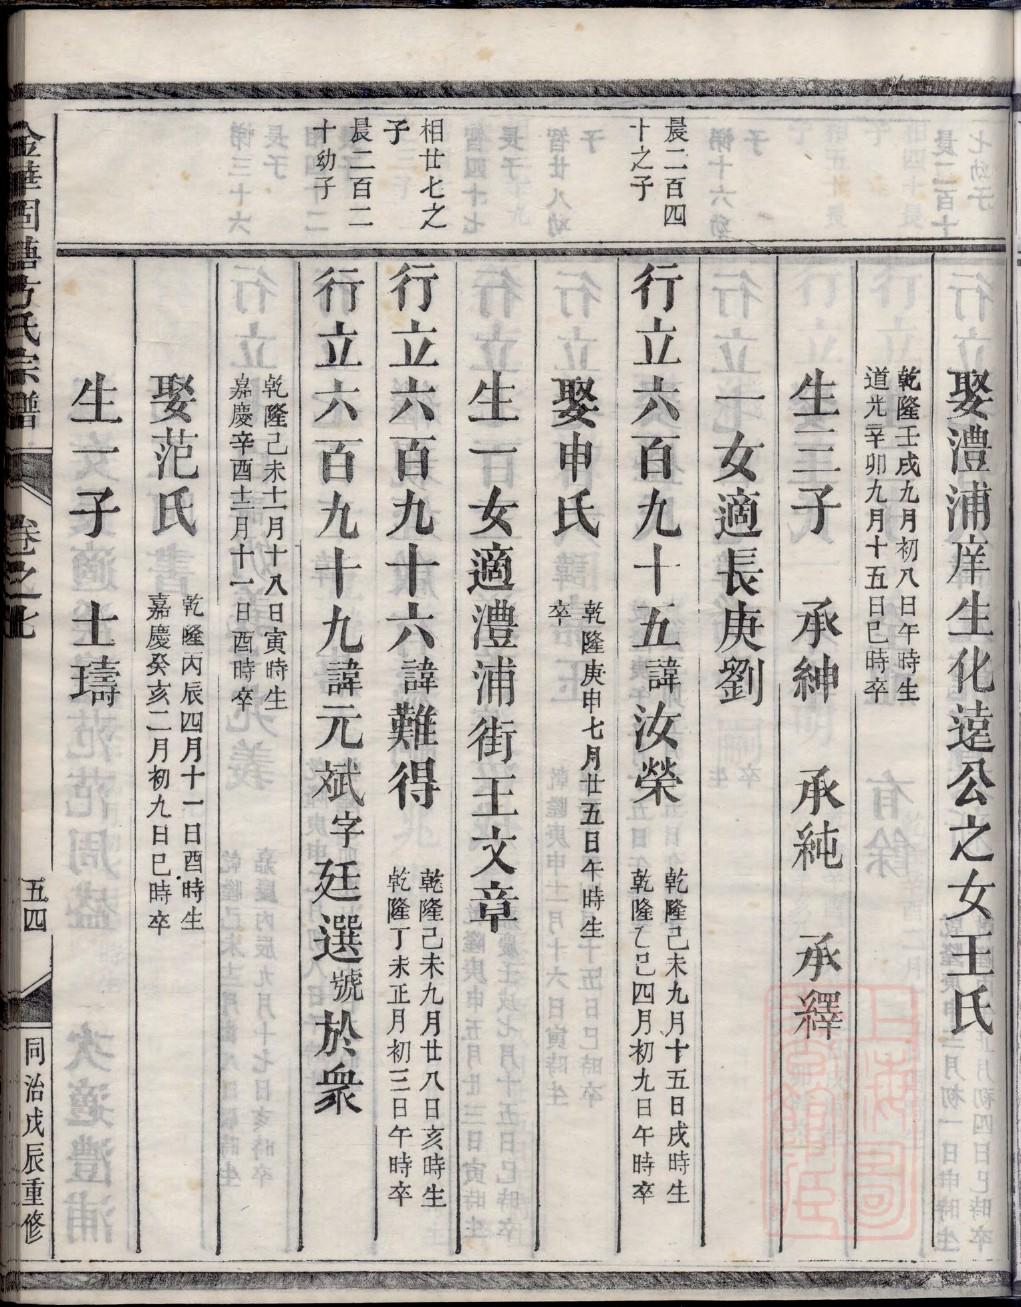 娶澧浦庠生化遠公之女王氏
乾隆壬戌九月初八日午時生
道光辛卯九月十五日巳時卒
生三子　承紳　承純　承繹
一女適長庚劉
晨二百四
十之子
行立六百九十五諱汝榮
乾隆己未九月十五日戌時生
乾隆乙巳四月初九日午時卒
娶申氏
乾隆庚申七月廿五日午時生
卒
生一女適澧浦街王文章
相廿七之
子
行立六百九十六諱難得
乾隆己未九月廿八日亥時生
乾隆丁未正月初三日午時卒
晨二百二
十幼子
行立六百九十九諱元斌字廷選號於衆
乾隆己未十一月十八日寅時生
嘉慶辛酉十二月十一日酉時卒
娶范氏
乾隆丙辰四月十一日酉時生
嘉慶癸亥二月初九日巳時卒
生一子　士璹
卷之七
五四
同治戊辰重修